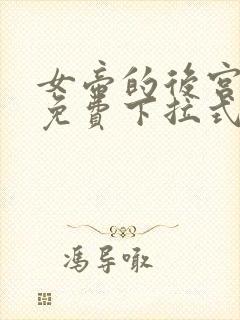 女帝的後宮
免費下拉式
馮導噉